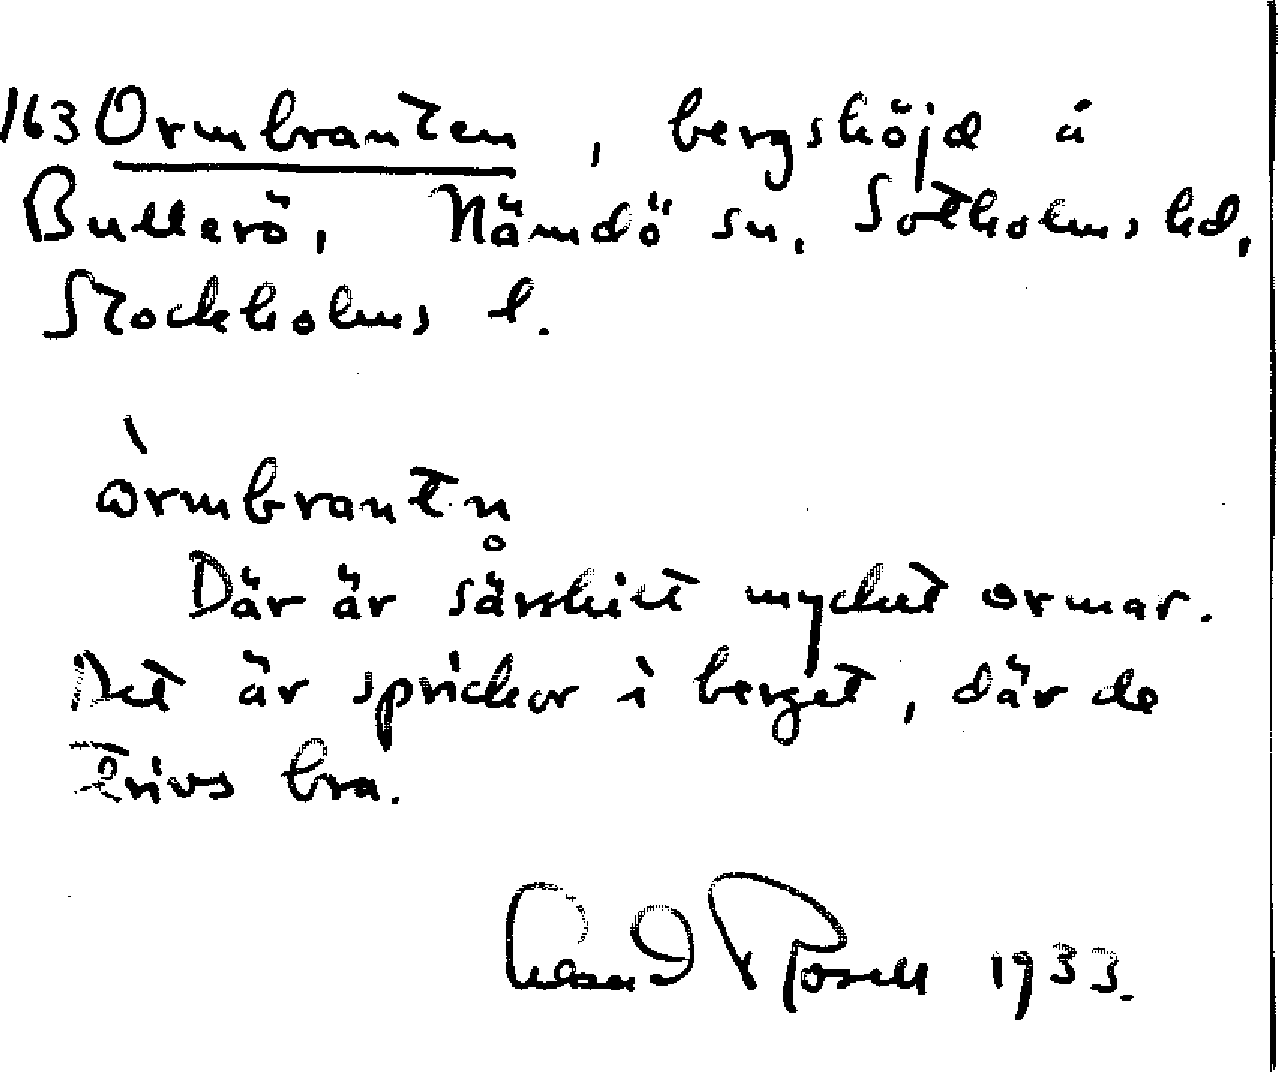 163 Ormbranten, bergshöjd å
Bullerö, Nämdö sn, Sotholms hd,
Stockholms l.
òrmbrantn̥
Där är särskilt mycket ormar.
Det är sprickor i berget, där de
trivs bra.
Rosell 1933.